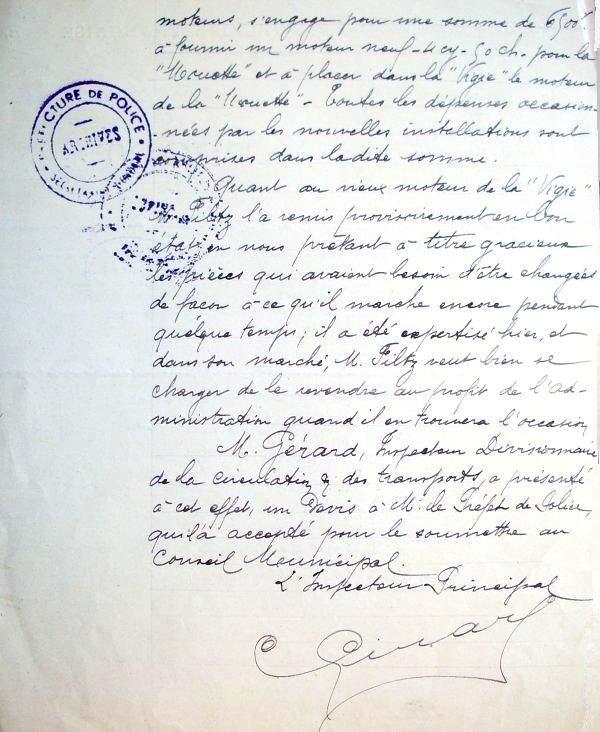 moteurs, s'engage pour une somme de 6500f
à fournir un moteur neuf - 4 cy - 50 ch. pour la
"Mouette" et à placer dans la "Vigie" le moteur
de la "Mouette" - Toutes les dépenses occasion-
-nées par les nouvelles installations sont
comprises dans ladite somme.
Quant au vieux moteur de la "Vigie"
M. Filtz l'a remis provisoirement en bon
état en nous prêtant à titre gracieux
les pièces qui avaient besoin d'être changées
de façon à ce qu'il marche encore pendant
quelque temps; il a été expertisé hier, et
dans son marché, M. Filtz veut bien se
charger de le revendre au profit de l'ad-
ministration quand il en trouvera l'occasion
M. Gérard, Inspecteur Divisionnaire
de la circulation & des transports, a présenté
à cet effet, un Devis à M. le Préfet de Police,
qui l'a accepté pour le soumettre au
Conseil Municipal.
L'Inspecteur Principal
CTURE DE POLICE
ARCHIVES